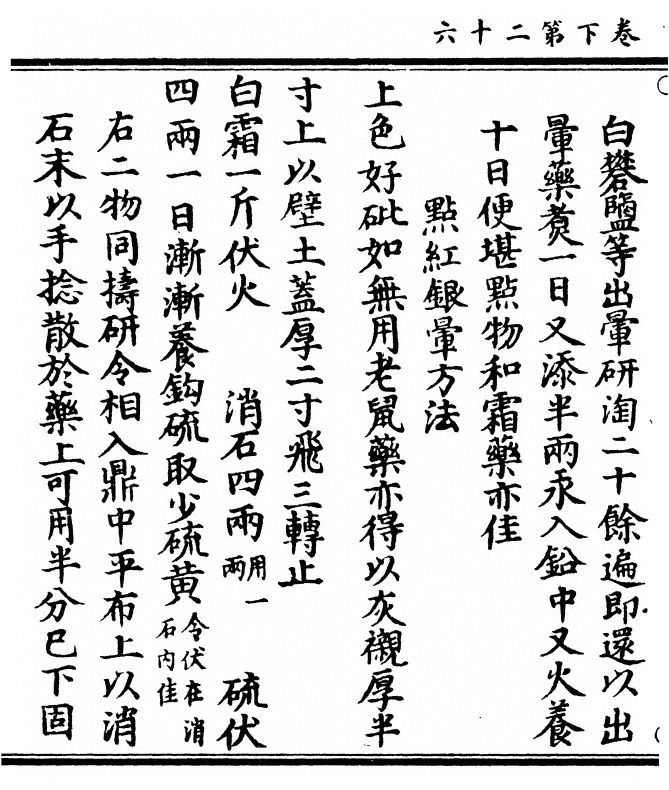 卷下第二十六
白礬鹽等出暈研淘二十餘遍即還以出
暈藥煑一日又添半兩汞入鉛中又火養
十日便堪點物和霜藥亦佳
點紅銀暈方法
上色好砒如無用老鼠藥亦得以灰襯厚半
寸上以壁土蓋厚二寸飛三轉止
白霜一斤伏火 消石四兩用一兩 硫伏
四兩一日漸漸養鈎硫取少硫黄令伏在消石内佳
右二物同擣研令相入鼎中平布上以消
石末以手捻散於藥上可用半分巳下固